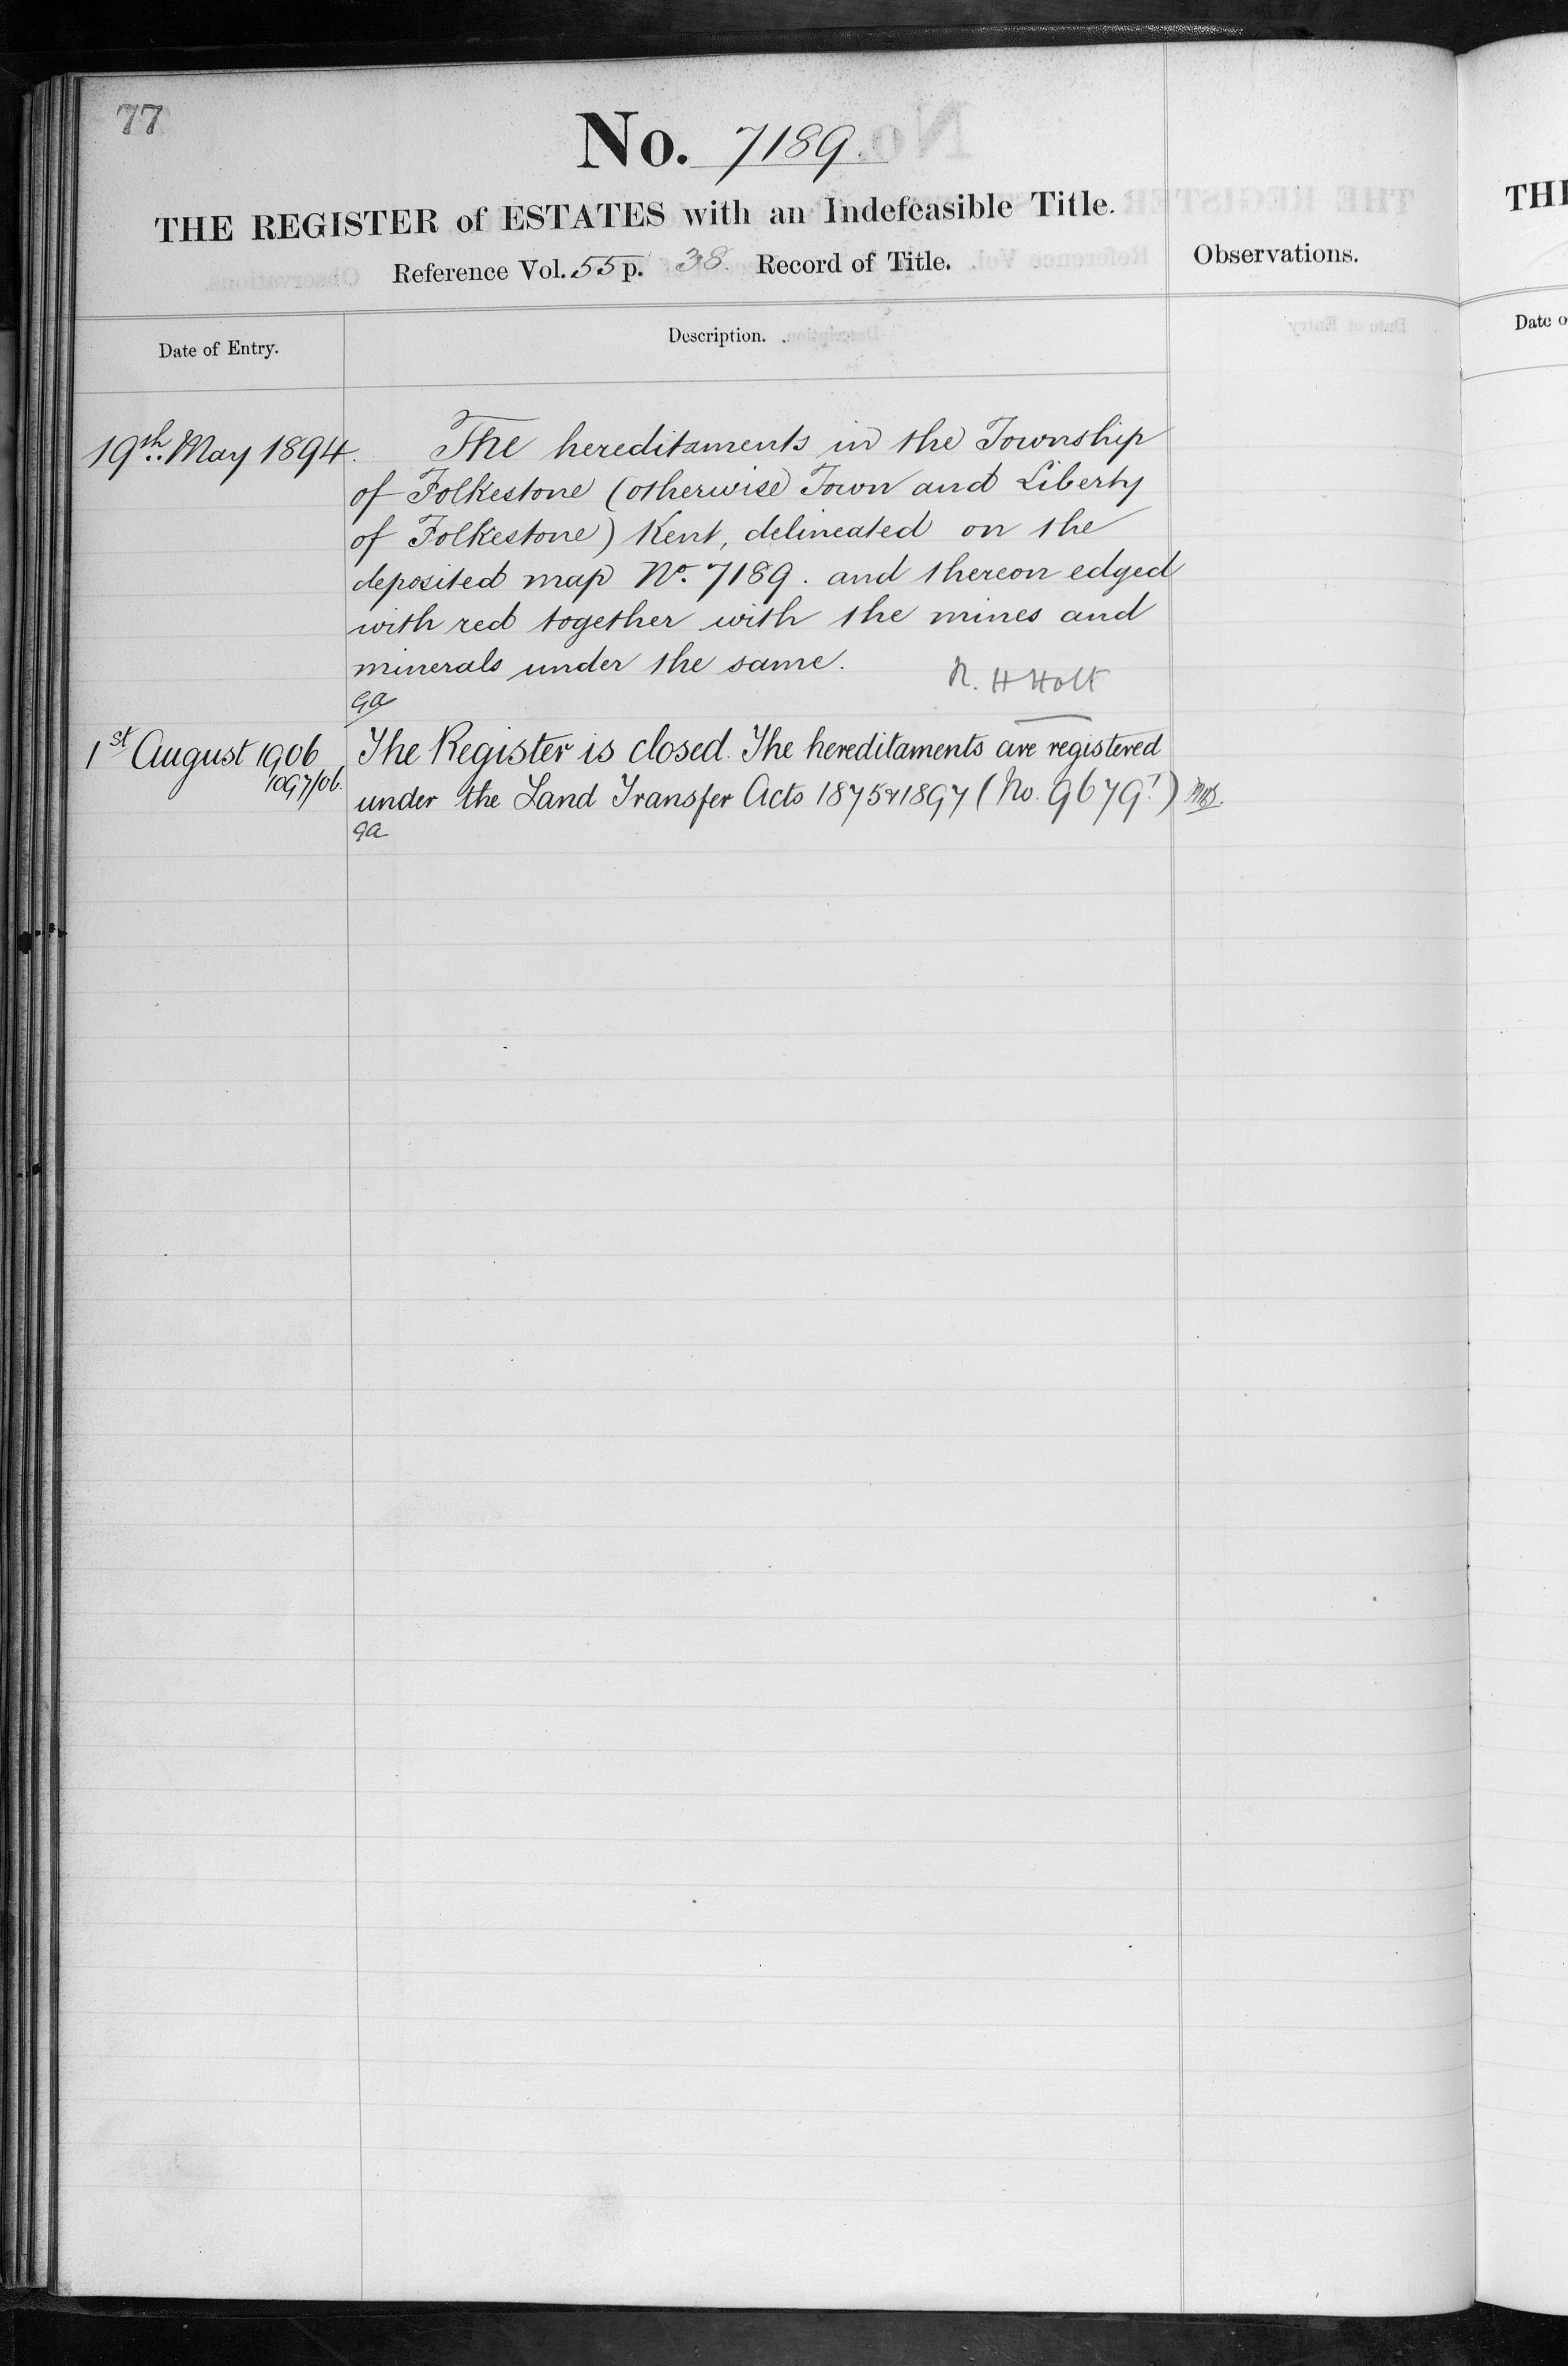 77
No. 7189.
THE REGISTER of ESTATES with an Indefeasible Title.
Reference Vol. 55 p. 38. Record of Title.
Observations.
Date of Entry.
Description.
19th May 1894.
The hereditaments in the Township
of Folkestone (otherwise Town and Liberty
of Folkestone) Kent, delineated on the
deposited map No. 7189. and thereon edged
with red together with the mines and
minerals under the same.
R. H Holt
ga
1st August 1906
1097/06.
The Register is closed. The hereditaments are registered
under the Land Transfer Acts 1875 & 1897 (No. 9679)
ga
THE
Date o